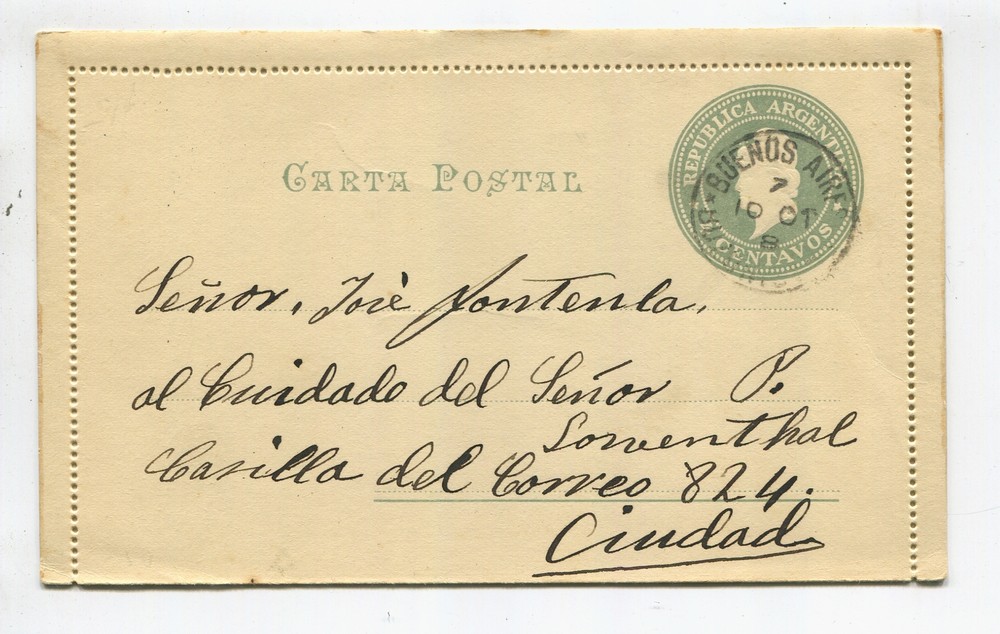 REPUBLICA ARGENTINA
CENTAVOS
BUENOS AIRES
7
10 OT
8
CARTA POSTAL
Señor. José Fontenla.
al Cuidado del Señor P.
Lowenthal
Casilla del Correo 824.
Ciudad